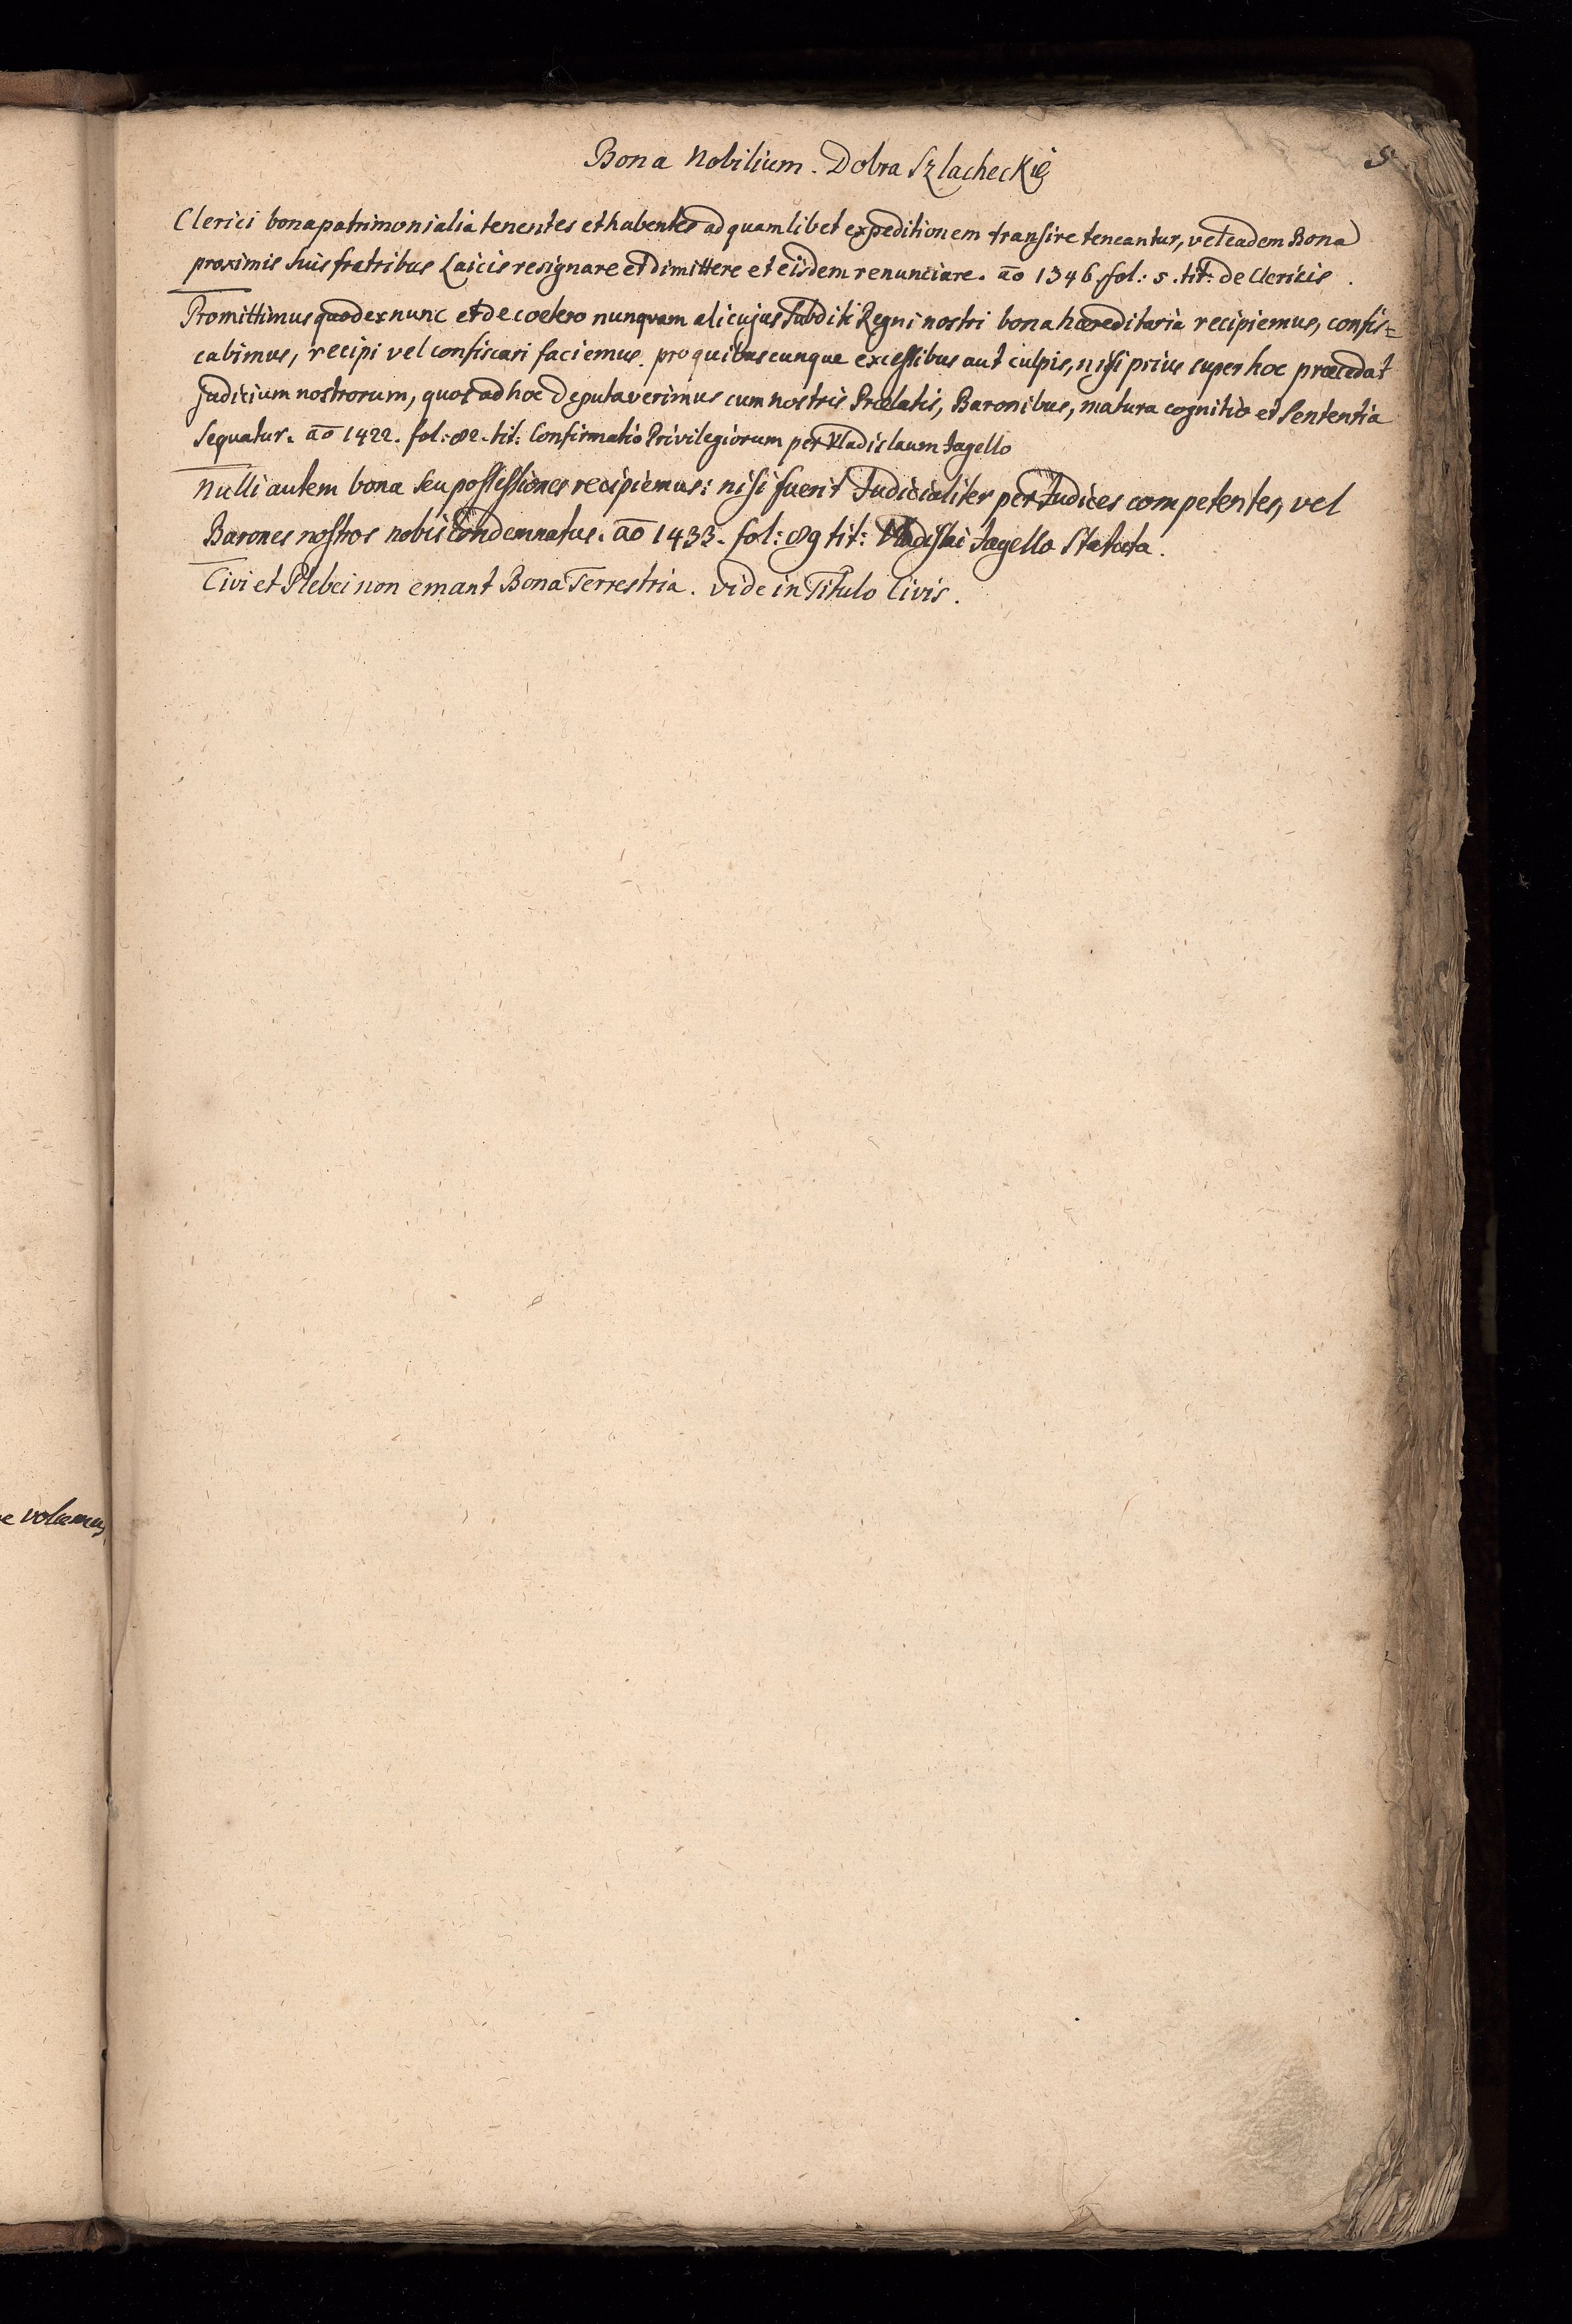 Bona Nobilium. Dobra Szlacheckię
5
Clerici bona patrimonialia tenentes et habentes ad quamlibet expeditionem transire teneantur, vel eadem Bona
proximis suis fratribus Laicis resignare et dimittere et eisdem renunciare. ao 1346. fol: 5. tit: de Clericis.
Promittimus quod ex nunc et de coetero nunquam alicujus Subditi Regni nostri bona hæreditaria recipiemus, confis=
cabimus, recipi vel confiscari faciemus. pro quibuscunque excessibus aut culpis, nisi prius super hoc præcedat
Judicium nostrorum, quos ad hoc Deputaverimus cum nostris Prælatis, Baronibus, matura cognitio et Sententia
Sequatur. ao 1422. fol: 82. tit: Confirmatio Privilegiorum per Vladislaum Jagello
Nulli autem bona seu possessiones recipiemus: nisi fuerit Judicialiter per Judices competentes, vel
Barones nostros nobis Condemnatus. ao 1433. fol: 89 tit: Vladislai Jagello Statuta.
Civi et Plebei non emant Bona Terrestria. vide in Titulo Civis.
e volumus,